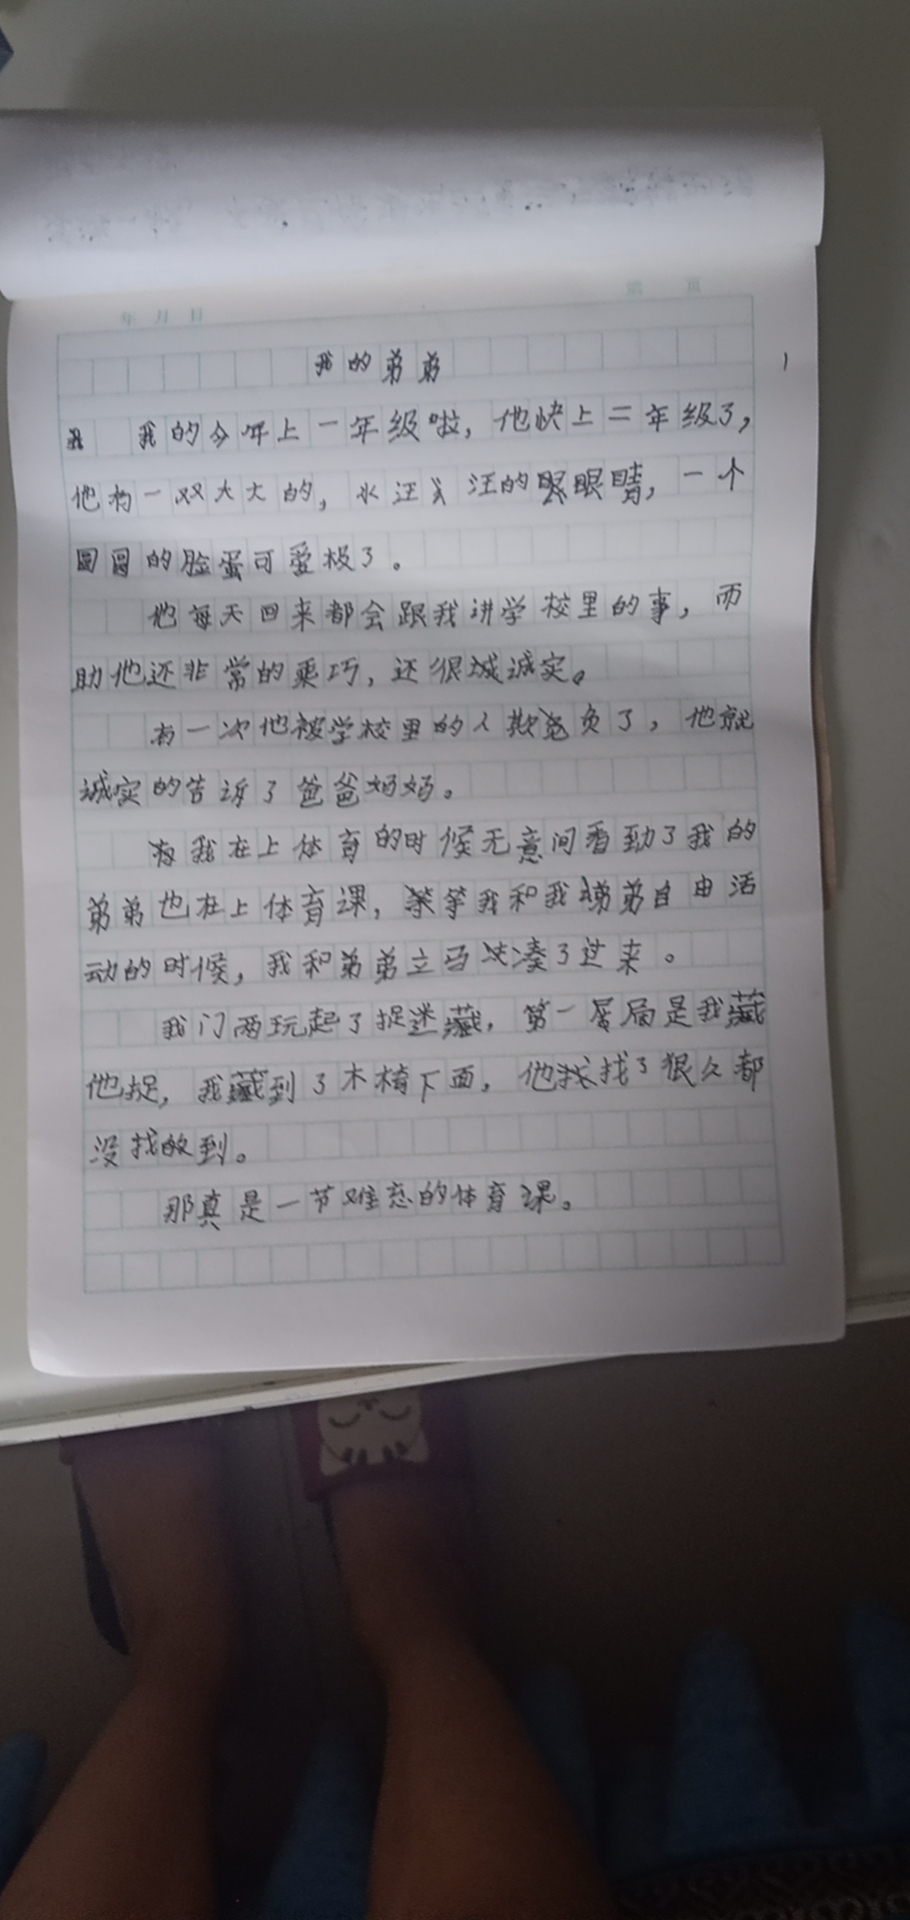 年 月 日 第 页
我的弟弟
我的今年上一年级啦，他快上二年级了，
他有一双大大的，水汪汪的眼睛，一个
圆圆的脸蛋可爱极了。
他每天回来都会跟我讲学校里的事，而
助他还非常的乖巧，还很诚实。
有一次他被学校里的人欺负了，他就
诚实的告诉了爸爸妈妈。
我在上体育的时候无意间看到了我的
弟弟也在上体育课，等我和我弟弟自由活
动的时候，我和弟弟立马凑了过来。
我门两玩起了捉迷藏，第一局是我藏
他捉，我藏到了木椅下面，他找了狠久都
没找到。
那真是一节难忘的体育课。